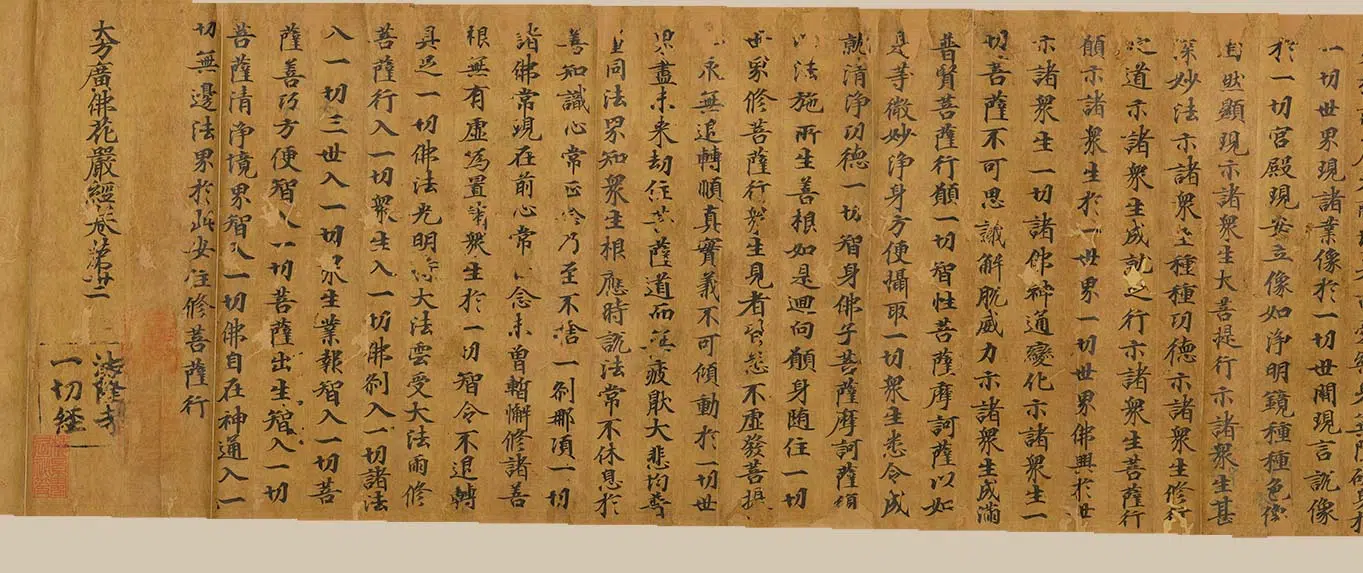 一切世界現諸業像於一切世間現言說像
於一切宮殿現安立像如淨明鏡種種色像
自然顯現示諸衆生大菩提行示諸衆生甚
深妙法示諸衆生種種功德示諸衆生修行
之道示諸衆生成就之行示諸衆生菩薩行
願示諸衆生於一世界一切世界佛興於世
示諸衆生一切諸佛神通變化示諸衆生一
切菩薩不可思議解脫威力示諸衆生成滿
普賢菩薩行願一切智性菩薩摩訶薩以如
是等微妙淨身方便攝取一切衆生悉令成
就清淨功德一切智身佛子菩薩摩訶薩復
以法施所生善根如是迴向願身随住一切
世界修菩薩行衆生見者皆悉不虛發菩提
心永無退轉順真實義不可傾動於一切世
界盡未来劫住菩薩道而無疲猒大悲均普
量同法界知衆生根應時說法常不休息於
善知識心常正念乃至不捨一刹那頃一切
諸佛常現在前心常正念未曾暫懈修諸善
根無有虛僞置諸衆生於一切智令不退轉
具足一切佛法光明持大法雲受大法雨修
菩薩行入一切衆生入一切佛刹入一切諸法
入一切三世入一切衆生業報智入一切菩
薩善巧方便智入一切菩薩出生智入一切
菩薩清淨境界智入一切佛自在神通入一
切無邊法界於此安住修菩薩行
大方廣佛花嚴經卷第廿二
法隆寺
一切經